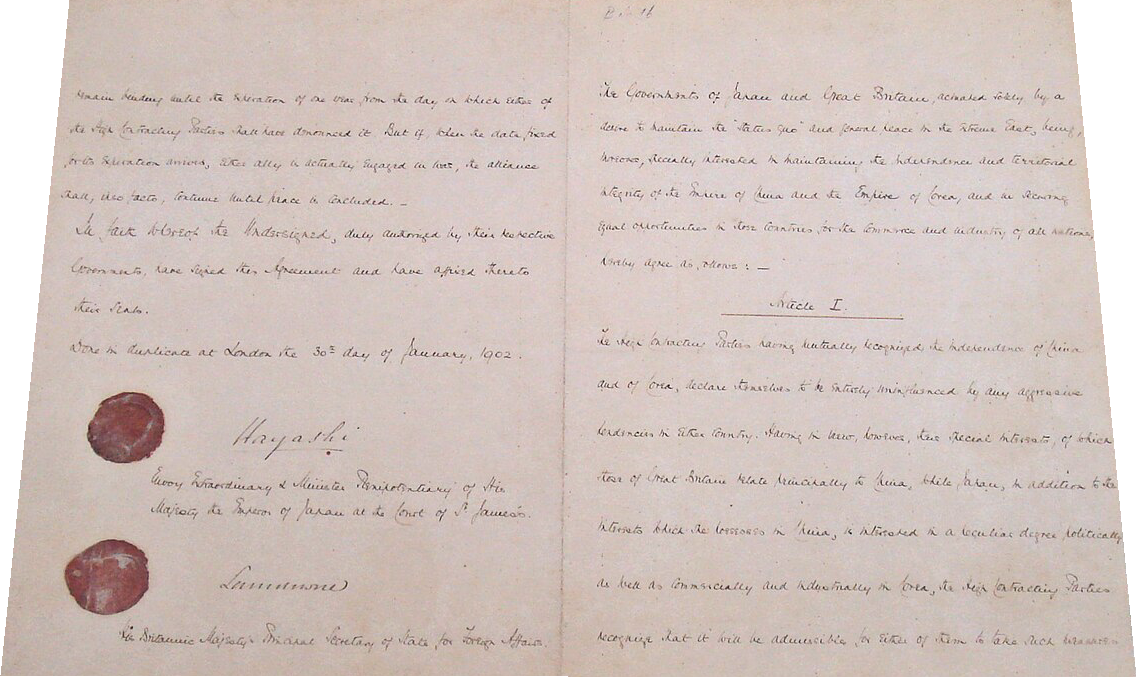 remain binding until the expiration of one year from the day on which either of
the High Contracting Parties shall have denounced it. But if, when the date fixed
for its expiration arrives, either ally is actually engaged in war, the alliance
shall, ipso facto, continue until peace is concluded. —
In faith whereof the Undersigned, duly authorized by their respective
Governments, have signed this Agreement and have affixed thereto
their Seals.
Done in duplicate at London the 30th day of January, 1902.
Hayashi
Envoy Extraordinary & Minister Plenipotentiary of His
Majesty the Emperor of Japan at the Court of St James's.
Lansdowne
His Britannic Majesty's Principal Secretary of State for Foreign Affairs.
The Governments of Japan and Great Britain, actuated solely by a
desire to maintain the "status quo" and general peace in the Extreme East, being,
moreover, specially interested in maintaining the independence and territorial
integrity of the Empire of China and the Empire of Corea, and in securing
equal opportunities in those countries for the commerce and industry of all nations,
hereby agree as follows: —
Article I.
The High Contracting Parties having mutually recognized the independence of China
and of Corea, declare themselves to be entirely uninfluenced by any aggressive
tendencies in either country. Having in view, however, their special interests, of which
those of Great Britain relate principally to China, while Japan, in addition to the
interests which she possesses in China, is interested in a peculiar degree politically
as well as commercially and industrially in Corea, the High Contracting Parties
recognize that it will be admissible for either of them to take such measures